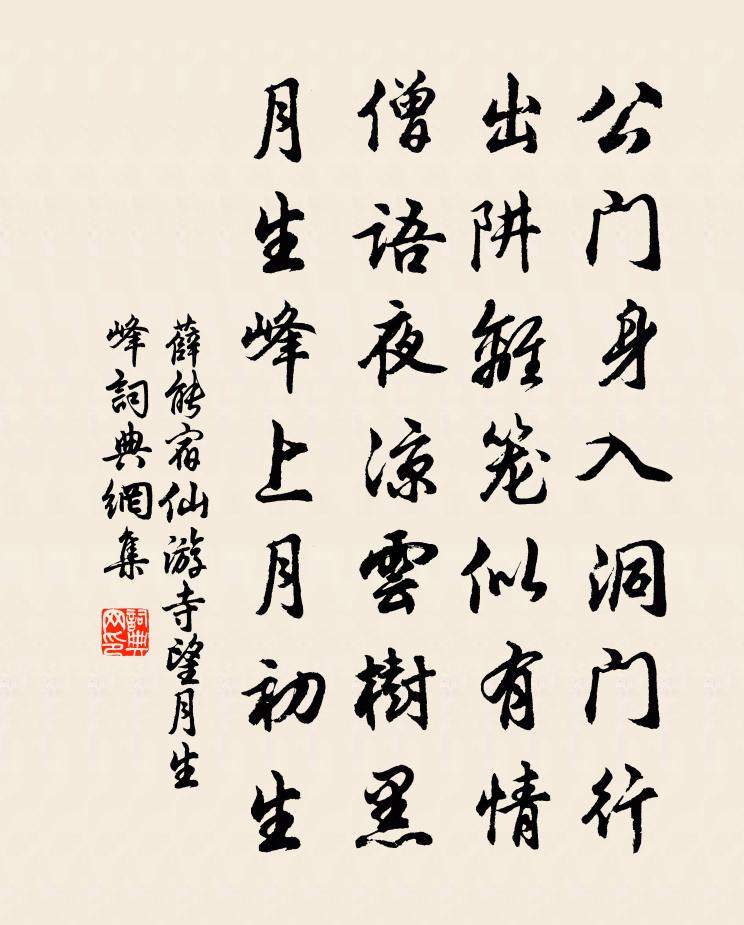 公门身入洞门行
出阱離笼似有情
僧语夜凉雲樹黑
月生峰上月初生
薛能宿仙游寺望月生
峰詞典網集
詞典
网印